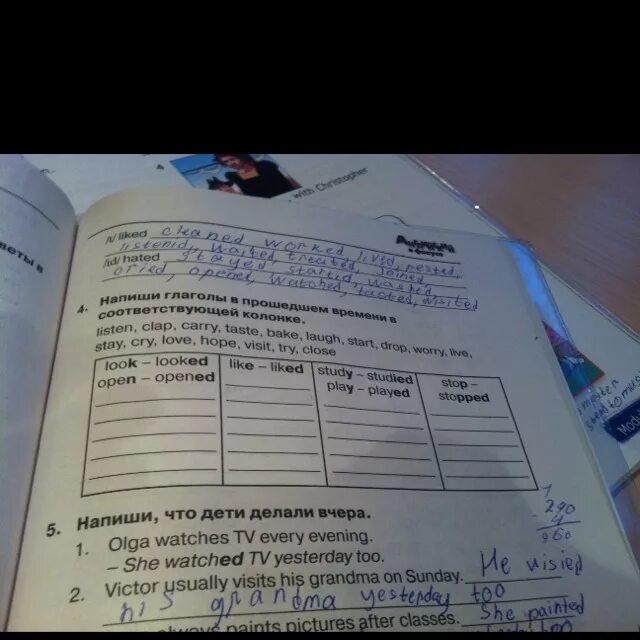 with Christopher
4
Английский
в фокусе
/t/ liked cleaned worked, lived, rested,
listened, waited, treated, joined
/id/ hated stayed started wasted
cried, opened, watched, tasted, visited
4. Напиши глаголы в прошедшем времени в
соответствующей колонке.
listen, clap, carry, taste, bake, laugh, start, drop, worry, live,
stay, cry, love, hope, visit, try, close
look – looked like – liked study – studied stop –
open – opened play – played stopped
5. Напиши, что дети делали вчера.
1. Olga watches TV every evening.
– She watched TV yesterday too.
290
4
960
2. Victor usually visits his grandma on Sunday. He visied
his grandma yesterday too
always paints pictures after classes. She painted